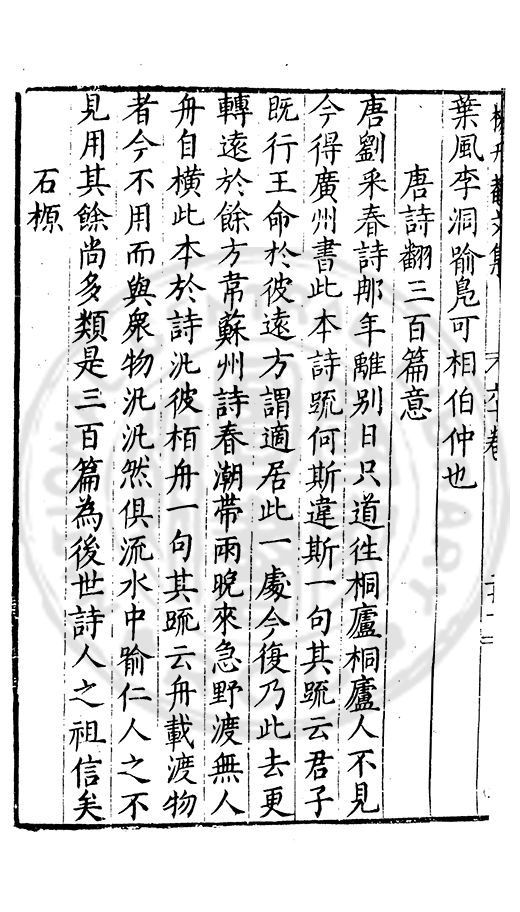 葉風李洞喻鳧可相伯仲也
唐詩翻三百篇意
唐劉采春詩那年離别日只道徃桐廬桐廬人不見
今得廣州書此本詩䟽何斯違斯一句其䟽云君子
既行王命於彼遠方謂適居此一處今復乃此去更
轉遠於餘方韋蘇州詩春潮帶雨晚來急野渡無人
舟自横此本於詩汎彼栢舟一句其䟽云舟載渡物
者今不用而與衆物汎汎然俱流水中喻仁人之不
見用其餘尚多類是三百篇為後世詩人之祖信矣
石榞